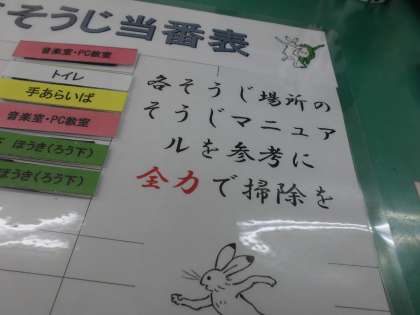 そうじ当番表
音楽室・PC教室
トイレ
手あらいば
音楽室・PC教室
ほうき(ろう下)
ほうき(ろう下)
各そうじ場所の
そうじマニュア
ルを参考に
全力で掃除を